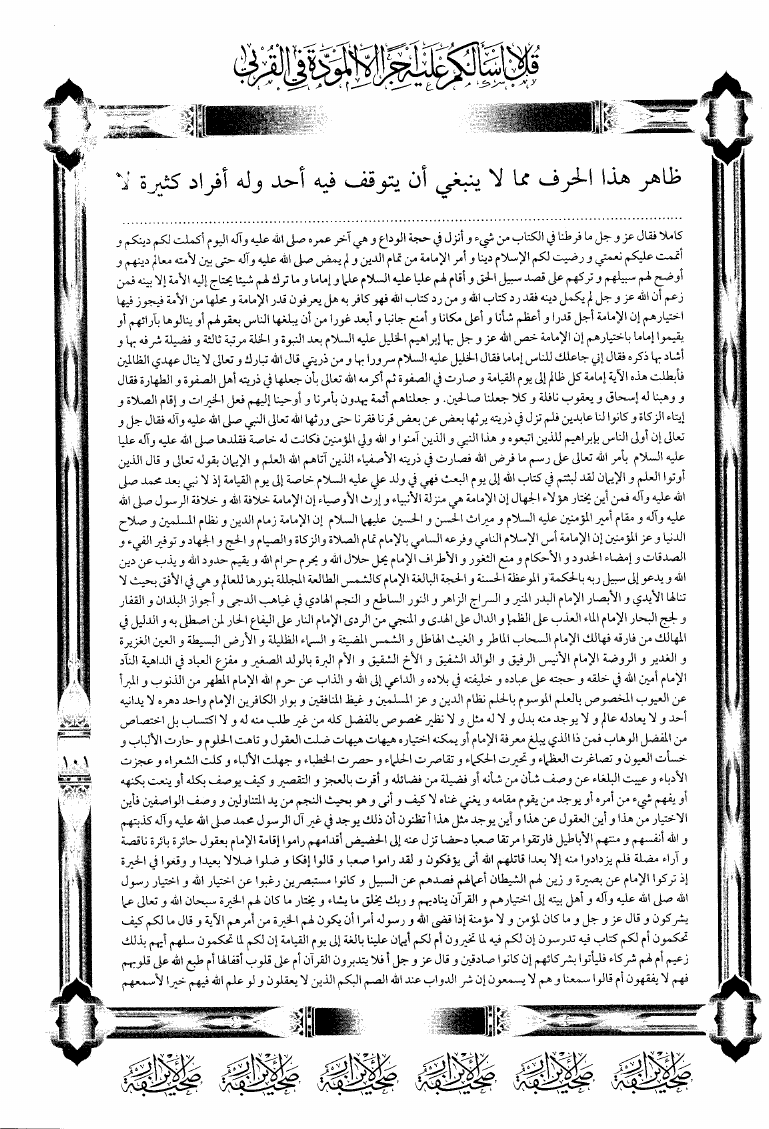 قل لا أسألكم عليه أجرا إلا المودة في القربى
ظاهر هذا الحرف مما لا ينبغي أن يتوقف فيه أحد وله أفراد كثيرة لا
كاملا فقال عز و جل ما فرطنا في الكتاب من شيء و أنزل في حجة الوداع و هي آخر عمره صلى الله عليه وآله اليوم أكملت لكم دينكم و
أتممت عليكم نعمتي و رضيت لكم الإسلام دينا و أمر الإمامة من تمام الدين و لم يمض صلى الله عليه وآله حتى بين لأمته معالم دينهم و
أوضح لهم سبيلهم و تركهم على قصد سبيل الحق و أقام لهم عليا عليه السلام علما و إماما و ما ترك لهم شيئا يحتاج إليه الأمة إلا بينه فمن
زعم أن الله عز و جل لم يكمل دينه فقد رد كتاب الله و من رد كتاب الله فهو كافر به هل يعرفون قدر الإمامة و محلها من الأمة فيجوز فيها
اختيارهم إن الإمامة أجل قدرا و أعظم شأنا و أعلى مكانا و أمنع جانبا و أبعد غورا من أن يبلغها الناس بعقولهم أو ينالوها بآرائهم أو
يقيموا إماما باختيارهم إن الإمامة خص الله عز و جل بها إبراهيم الخليل عليه السلام بعد النبوة و الخلة مرتبة ثالثة و فضيلة شرفه بها و
أشاد بها ذكره فقال إني جاعلك للناس إماما فقال الخليل عليه السلام سرورا بها و من ذريتي قال الله تبارك و تعالى لا ينال عهدي الظالمين
فأبطلت هذه الآية إمامة كل ظالم إلى يوم القيامة و صارت في الصفوة ثم أكرمه الله تعالى بأن جعلها في ذريته أهل الصفوة و الطهارة فقال
و وهبنا له إسحاق و يعقوب نافلة و كلا جعلنا صالحين. و جعلناهم أئمة يهدون بأمرنا و أوحينا إليهم فعل الخيرات و إقام الصلاة و
إيتاء الزكاة و كانوا لنا عابدين فلم تزل في ذريته يرثها بعض عن بعض قرنا فقرنا حتى ورثها الله تعالى النبي صلى الله عليه وآله فقال جل و
تعالى إن أولى الناس بإبراهيم للذين اتبعوه و هذا النبي و الذين آمنوا و الله ولي المؤمنين فكانت له خاصة فقلدها صلى الله عليه وآله عليا
عليه السلام بأمر الله تعالى على رسم ما فرض الله فصارت في ذريته الأصفياء الذين آتاهم الله العلم و الإيمان بقوله تعالى و قال الذين
أوتوا العلم و الإيمان لقد لبثتم في كتاب الله إلى يوم البعث فهي في ولد علي عليه السلام خاصة إلى يوم القيامة إذ لا نبي بعد محمد صلى
الله عليه وآله فمن أين يختار هؤلاء الجهال إن الإمامة هي منزلة الأنبياء و إرث الأوصياء إن الإمامة خلافة الله و خلافة الرسول صلى الله
عليه وآله و مقام أمير المؤمنين عليه السلام و ميراث الحسن و الحسين عليهما السلام إن الإمامة زمام الدين و نظام المسلمين و صلاح
الدنيا و عز المؤمنين إن الإمامة أس الإسلام النامي وفرعه السامي بالإمام تمام الصلاة والزكاة والصيام و الحج و الجهاد و توفير الفيء و
الصدقات و إمضاء الحدود و الأحكام و منع الثغور و الأطراف الإمام يحل حلال الله و يحرم حرام الله و يقيم حدود الله و يذب عن دين
الله و يدعو إلى سبيل ربه بالحكمة و الموعظة الحسنة و الحجة البالغة الإمام كالشمس الطالعة المجللة بنورها للعالم و هي في الأفق بحيث لا
تنالها الأيدي و الأبصار الإمام البدر المنير و السراج الزاهر و النور الساطع و النجم الهادي في غياهب الدجى و أجواز البلدان و القفار
و لجج البحار الإمام الماء العذب على الظمإ و الدال على الهدى و المنجي من الردى الإمام النار على اليفاع الحار لمن اصطلى به و الدليل في
المهالك من فارقه فهالك الإمام السحاب الماطر و الغيث الهاطل و الشمس المضيئة و السماء الظليلة و الأرض البسيطة و العين الغزيرة
و الغدير و الروضة الإمام الأنيس الرفيق و الوالد الشفيق و الأخ الشقيق و الأم البرة بالولد الصغير و مفزع العباد في الداهية النآد
الإمام أمين الله في خلقه و حجته على عباده و خليفته في بلاده و الداعي إلى الله و الذاب عن حرم الله الإمام المطهر من الذنوب و المبرأ
عن العيوب المخصوص بالعلم الموسوم بالحلم نظام الدين و عز المسلمين و غيظ المنافقين و بوار الكافرين الإمام واحد دهره لا يدانيه
أحد و لا يعادله عالم و لا يوجد منه بدل و لا له مثل و لا نظير مخصوص بالفضل كله من غير طلب منه له و لا اكتساب بل اختصاص
من المفضل الوهاب فمن ذا الذي يبلغ معرفة الإمام أو يمكنه اختياره هيهات هيهات ضلت العقول و تاهت الحلوم و حارت الألباب و
خسأت العيون و تصاغرت العظماء و تحيرت الحكماء و تقاصرت الحلماء و حصرت الخطباء و جهلت الألباء و كلت الشعراء و عجزت
الأدباء و عييت البلغاء عن وصف شأن من شأنه أو فضيلة من فضائله و أقرت بالعجز و التقصير و كيف يوصف بكله أو ينعت بكنهه
أو يفهم شيء من أمره أو يوجد من يقوم مقامه و يغني غناه لا كيف و أنى و هو بحيث النجم من يد المتناولين و وصف الواصفين فأين
الاختيار من هذا و أين العقول عن هذا و أين يوجد مثل هذا أ تظنون أن ذلك يوجد في غير آل الرسول محمد صلى الله عليه وآله كذبتهم
و الله أنفسهم و منتهم الأباطيل فارتقوا مرتقا صعبا دحضا تزل عنه إلى الحضيض أقدامهم راموا إقامة الإمام بعقول حائرة بائرة ناقصة
و آراء مضلة فلم يزدادوا منه إلا بعدا قاتلهم الله أنى يؤفكون و لقد راموا صعبا و قالوا إفكا و ضلوا ضلالا بعيدا و وقعوا في الحيرة
إذ تركوا الإمام عن بصيرة و زين لهم الشيطان أعمالهم فصدهم عن السبيل و كانوا مستبصرين رغبوا عن اختيار الله و اختيار رسول
الله صلى الله عليه و آله و أهل بيته إلى اختيارهم و القرآن يناديهم و ربك يخلق ما يشاء و يختار ما كان لهم الخيرة سبحان الله و تعالى عما
يشركون و قال عز و جل و ما كان لمؤمن و لا مؤمنة إذا قضى الله و رسوله أمرا أن يكون لهم الخيرة من أمرهم الآية و قال ما لكم كيف
تحكمون أم لكم كتاب فيه تدرسون إن لكم فيه لما تخيرون أم لكم أيمان علينا بالغة إلى يوم القيامة إن لكم لما تحكمون سلهم أيهم بذلك
زعيم أم لهم شركاء فليأتوا بشركائهم إن كانوا صادقين و قال عز و جل أ فلا يتدبرون القرآن أم على قلوب أقفالها أم طبع الله على قلوبهم
فهم لا يفقهون أم قالوا سمعنا و هم لا يسمعون إن شر الدواب عند الله الصم البكم الذين لا يعقلون و لو علم الله فيهم خيرا لأسمعهم
١٠١
صحيفة الأبرار صحيفة الأبرار صحيفة الأبرار صحيفة الأبرار صحيفة الأبرار صحيفة الأبرار